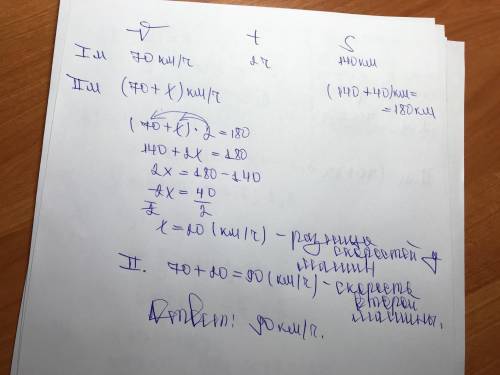 V t S
I м 70 км/ч 2 ч 140 км
II м (70+x) км/ч (140+40) км=
=180 км
(70+x)·2=180
140+2x=180
2x=180-140
2x/2=40/2
x=20 (км/ч) - разница
скоростей у
машин
II. 70+20=90 (км/ч) - скорость
второй
машины.
Ответ: 90 км/ч.